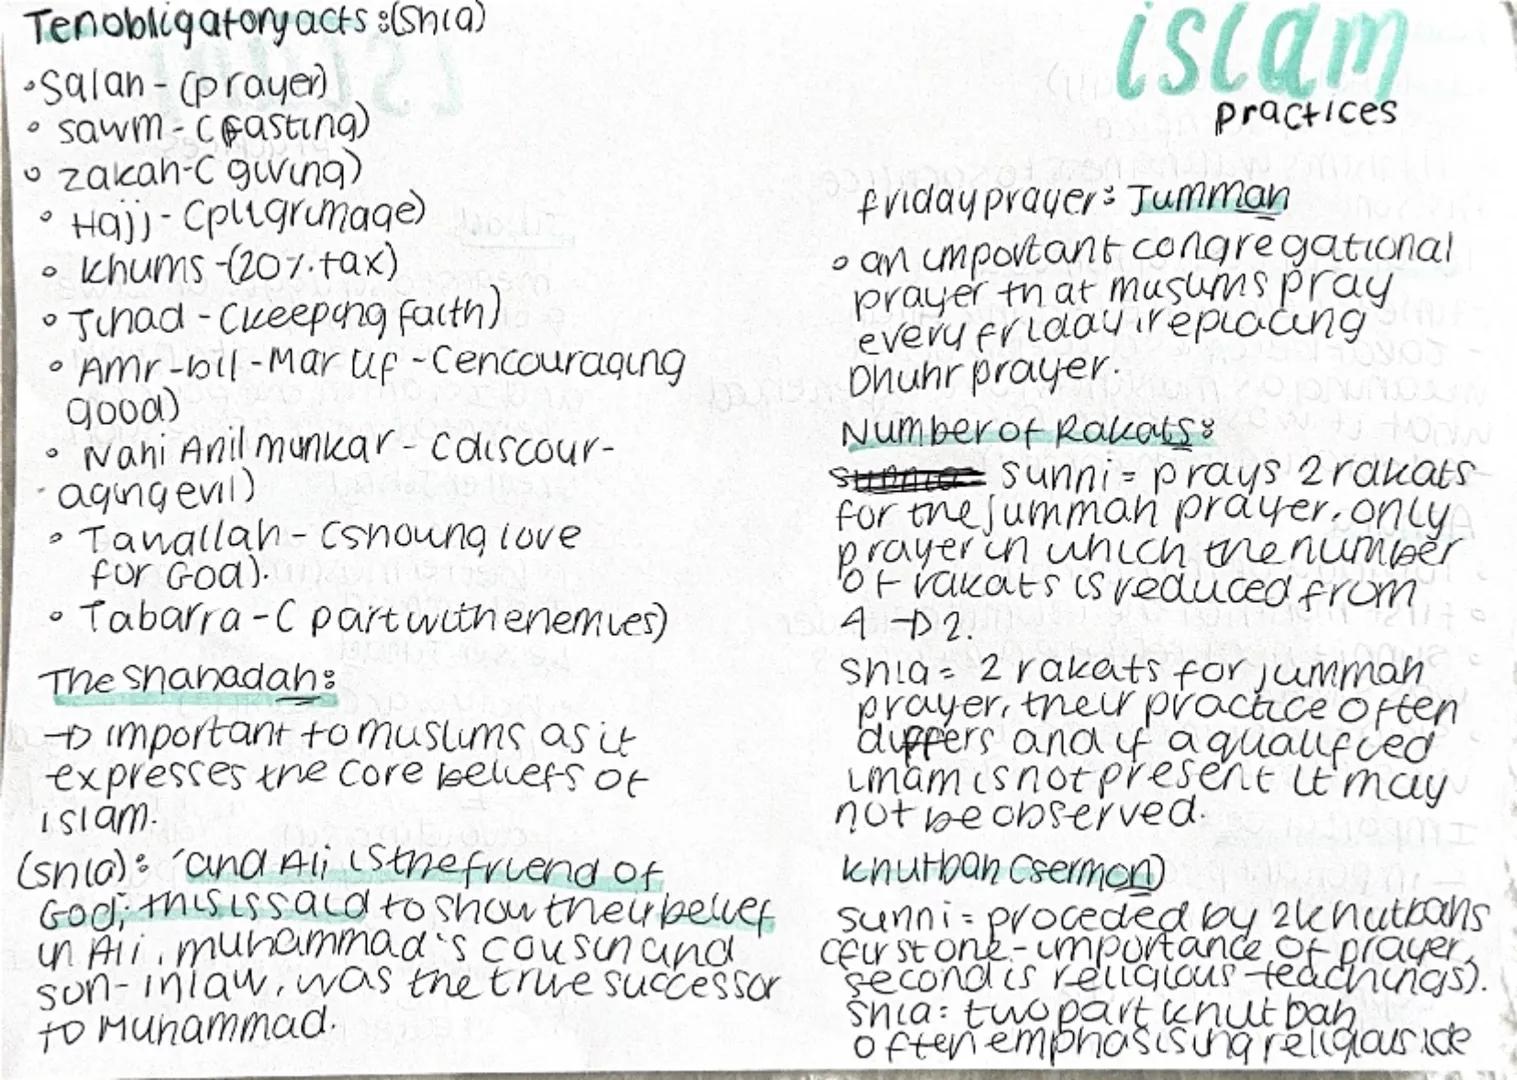 Ten obligatory acts :(Shia)
• Salah - (prayer)
• sawm - (fasting)
• zakah - (giving)
• Hajj - (pilgrimage)
• khums - (20% tax)
• Jihad - (keeping faith)
• Amr-bil-Mar uf - (encouraging
good)
• Nahi Anil munkar - (discour-
aging evil)
• Tawallah - (showing love
for God).
• Tabarra - ( part with enemies)
The shahadah:
→ important to muslims as it
expresses the core beliefs of
islam.
(shia): 'and Ali is the friend of
God; this is said to show their belief
in Ali, muhammad's cousin and
son-in law, was the true successor
to Muhammad.
islam
practices
friday prayer: Jummah
• an important congregational
prayer that muslims pray
every friday, replacing
Dhuhr prayer.
Number of Rakats:
sunni = prays 2 rakats
for the jummah prayer, only
prayer in which the number
of rakats is reduced from
4 → 2.
shia = 2 rakats for jummah
prayer, their practice often
differs and if a qualified
imam is not present it may
not be observed.
khutbah (sermon)
sunni = proceded by 2 khutbahs
(first one - importance of prayer,
second is religious teachings).
shia: two part khutbah
often emphasising religious ide